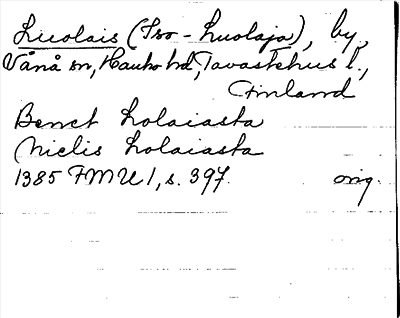 Luolais (Iso-Luolaja), by,
Vånå sn, Hauho hd, Tavastehus l.,
Finland
Benct Lolaiasta
Niclis Lolaiasta
1385 FMU 1, s. 397. orig.